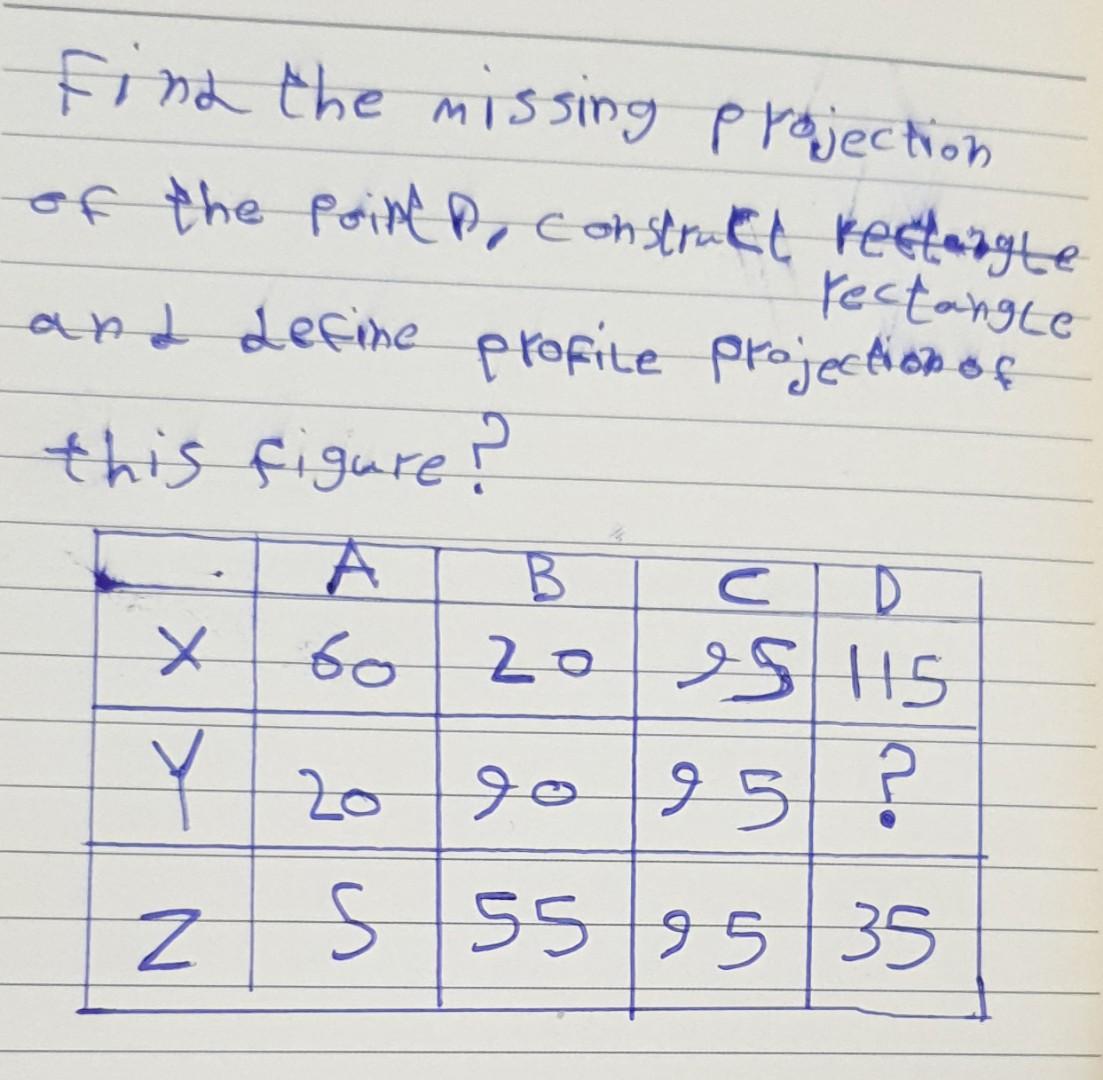 Find the missing projection
of the point D, construct rectangle
rectangle
and define profile projection of
this figure?
A B C D
X 60 20 95 115
Y 20 90 95 ?
Z 5 55 95 35